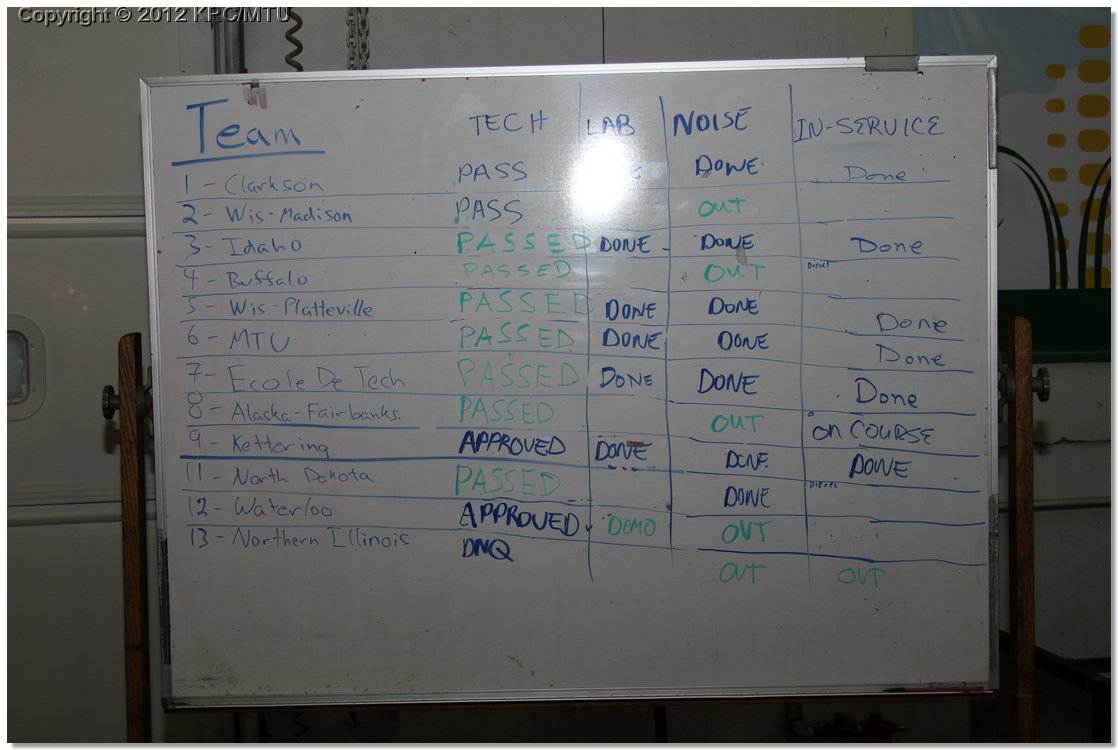 Copyright © 2012 KRC/MTU
Team TECH LAB NOISE IN-SERVICE
1 - Clarkson PASS DONE Done
2 - Wis-Madison PASS OUT
3 - Idaho PASSED DONE DONE Done
4 - Buffalo PASSED OUT DIESEL
5 - Wis-Platteville PASSED DONE DONE Done
6 - MTU PASSED DONE DONE Done
7 - Ecole De Tech PASSED DONE DONE Done
8 - Alaska-Fairbanks. PASSED OUT ON COURSE
9 - Kettering APPROVED DONE DONE. DONE
11 - North Dakota PASSED DONE DIESEL
12 - Waterloo APPROVED DEMO OUT
13 - Northern Illinois DNQ OUT OUT